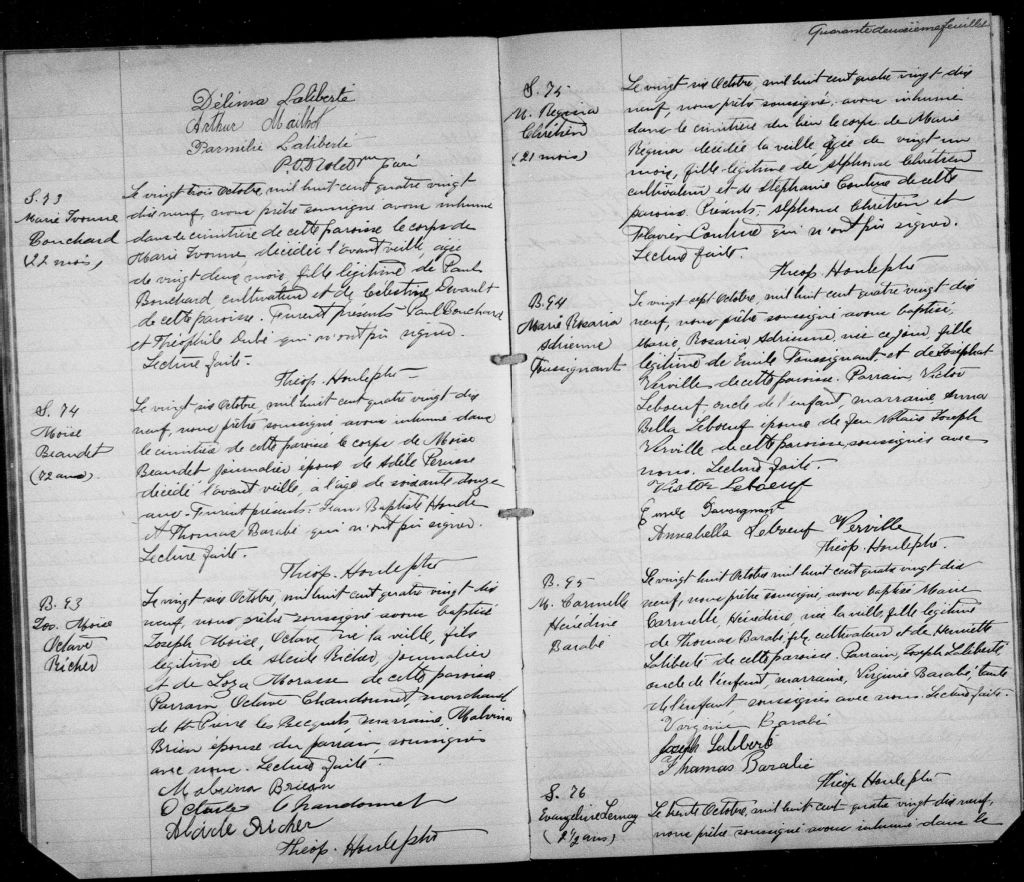 Délima Laliberté
Arthur Mailhot
Parmélie Laliberté
Ptre Curé
S. 73
Marie Yvonne
Bouchard
(22 mois)
Le vingt trois Octobre, mil huit cent quatre vingt
dix neuf, nous prêtre soussigné avons inhumé
dans le cimitière de cette paroisse le corps de
Marie Yvonne, décédée l'avant veille, agée
de vingt deux mois, fille légitime de Paul
Bouchard cultivateur et de Célestine Devault
de cette paroisse. Furent présents Paul Bouchard
et Théophile Dubé qui n'ont pû signer
Lecture faite.
Théop. Houle ptre
S. 74
Moise
Beaudet
(72 ans)
Le vingt six Octobre, mil huit cent quatre vingt dix
neuf, nous prêtre soussigné avons inhumé dans
le cimitière de cette paroisse le corps de Moise
Beaudet journalier époux de Adèle Perusse
décédé l'avant veille, à l'age de soixante douze
ans. Furent présents: Jean Baptiste Houde
et Thomas Barabé qui n'ont pû signer.
Lecture faite.
Théop. Houle ptre
B. 93
Jos. Moise
Octave
Richer
Le vingt six Octobre, mil huit cent quatre vingt dix
neuf, nous prêtre soussigné avons baptisé
Joseph Moise, Octave né la veille, fils
légitime de Alcide Richer, journalier
et de Loza Morasse de cette paroisse
Parrain Octave Chandonnet, marchand
de St Pierre les Becquets, marraine, Malvina
Brien épouse du parrain, soussignés
avec nous. Lecture faite.
Malvina Brien
Octave Chandonnet
Alcide Richer
Théop. Houle ptre
Quarante deuxième feuillet
S. 75
M. Régina
Chrétien
(21 mois)
Le vingt six Octobre, mil huit cent quatre vingt dix
neuf, nous prêtre soussigné avons inhumé
dans le cimitière du lieu le corps de Marie
Régina décédée la veille agée de vingt un
mois, fille légitime de Alphonse Chrétien
cultivateur et de Stéphanie Couture de cette
paroisse. Présents, Alphonse Chrétien et
Flavien Couture qui n'ont pû signer.
Lecture faite.
Théop. Houle ptre
B. 94
Marie Rosaria
Adrienne
Toussignant
Le vingt sept Octobre, mil huit cent quatre vingt dix
neuf, nous prêtre soussigné avons baptisé,
Marie, Rosaria Adrienne, née ce jour, fille
légitime de Emile Toussignant et de Josephat
Verville de cette paroisse. Parrain, Victor
Leboeuf oncle de l'enfant marraine, Anna
Bella Leboeuf épouse de feu Joseph
Verville de cette paroisse, soussignés avec
nous. Lecture faite.
Victor Leboeuf
Emile
Annabella Leboeuf Verville
Théop. Houle ptre.
B. 95
M. Carmelle
Hénédine
Barabé
Le vingt huit Octobre mil huit cent quatre vingt dix
neuf, nous prêtre soussigné, avons baptisé Marie
Carmelle, Hénédine, née la veille, fille légitime
de Thomas Barabé fils, cultivateur et de Henriette
Laliberté de cette paroisse. Parrain, Joseph Laliberté
oncle de l'enfant, marraine, Virginie Barabé, tante
de l'enfant soussignés avec nous. Lecture faite.
Virginie Barabé
Joseph Laliberté
Thomas Barabé
Théop Houle ptre
S. 76
Evangeline Lemay
(2 1/2 ans)
Le trente Octobre, mil huit cent quatre vingt dix neuf,
nous prêtre soussigné avons inhumé dans le